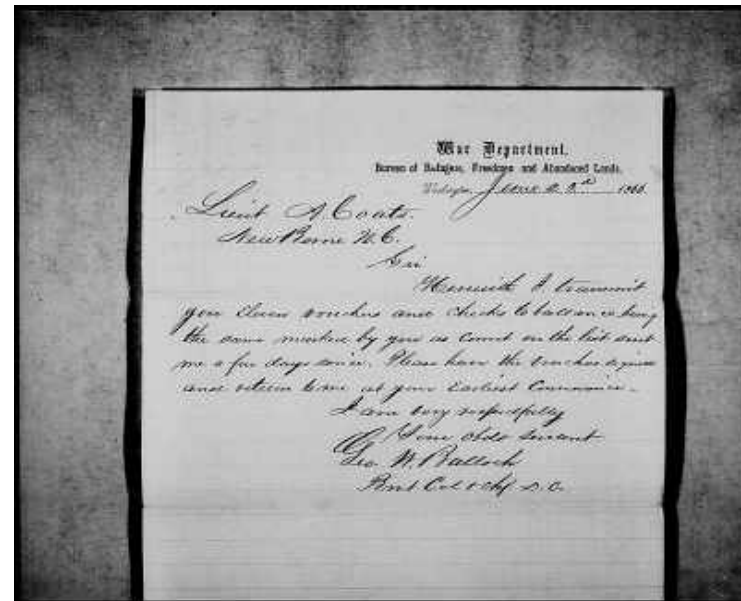 War Department,
Bureau of Refugees, Freedmen and Abandoned Lands,
June 1866
Lieut A Coats.
New Berne N.C.
Sir
Herewith I transmit
you Eleven vouchers and checks to ballance being
the same marked by you as Correct on the list sent
me a few days since. Please have the vouchers signed
and return to me at your Earliest Convenience.
I am very respectfully
Your Obdt Servant
Geo. W. Balloch
Bvt Col & Chf D.O.